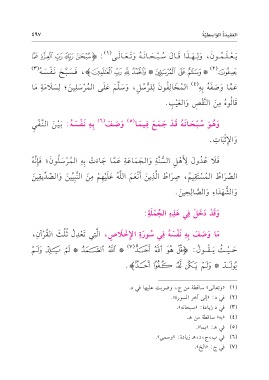 العقيدة الواسطية ٤٩٧
يَعْلَمُونَ، وَلِهَذَا قَالَ سُبْحَانَهُ وَتَعَالَى(١): ﴿سُبْحَٰنَ رَبِّكَ رَبِّ ٱلْعِزَّةِ عَمَّا
يَصِفُونَ(٢) * وَسَلَٰمٌ عَلَى ٱلْمُرْسَلِينَ * وَٱلْحَمْدُ لِلَّهِ رَبِّ ٱلْعَٰلَمِينَ﴾، فَسَبَّحَ نَفْسَهُ(٣)
عَمَّا وَصَفَهُ بِهِ(٤) المُخَالِفُونَ لِلرُّسُلِ، وَسَلَّمَ عَلَى المُرْسَلِينَ؛ لِسَلَامَةِ مَا
قَالُوهُ مِنَ النَّقْصِ وَالعَيْبِ.
وَهُوَ سُبْحَانَهُ قَدْ جَمَعَ فِيمَا(٥) وَصَفَ(٦) بِهِ نَفْسَهُ: بَيْنَ النَّفْيِ
وَالإِثْبَاتِ.
فَلَا عُدُولَ لِأَهْلِ السُّنَّةِ وَالجَمَاعَةِ عَمَّا جَاءَتْ بِهِ المُرْسَلُونَ؛ فَإِنَّهُ
الصِّرَاطُ المُسْتَقِيمُ، صِرَاطُ الَّذِينَ أَنْعَمَ اللَّهُ عَلَيْهِمْ مِنَ النَّبِيِّينَ وَالصِّدِّيقِينَ
وَالشُّهَدَاءِ وَالصَّالِحِينَ.
وَقَدْ دَخَلَ فِي هَذِهِ الجُمْلَةِ:
مَا وَصَفَ بِهِ نَفْسَهُ فِي سُورَةِ الإِخْلَاصِ، الَّتِي تَعْدِلُ ثُلُثَ القُرْآنِ،
حَيْثُ يَقُولُ: ﴿قُلْ هُوَ ٱللَّهُ أَحَدٌ(٧) * ٱللَّهُ ٱلصَّمَدُ * لَمْ يَلِدْ وَلَمْ
يُولَدْ * وَلَمْ يَكُن لَّهُۥ كُفُوًا أَحَدٌ﴾.
(١) «وتعالى» ساقطة من ج، وضرب عليها في د.
(٢) في د: «إلى آخر السورة».
(٣) في د زيادة: «سبحانه».
(٤) «به» ساقطة من هـ.
(٥) في هـ: «بما».
(٦) في ب، ج، د، هـ زيادة: «وسمى».
(٧) في ج: «الخ».